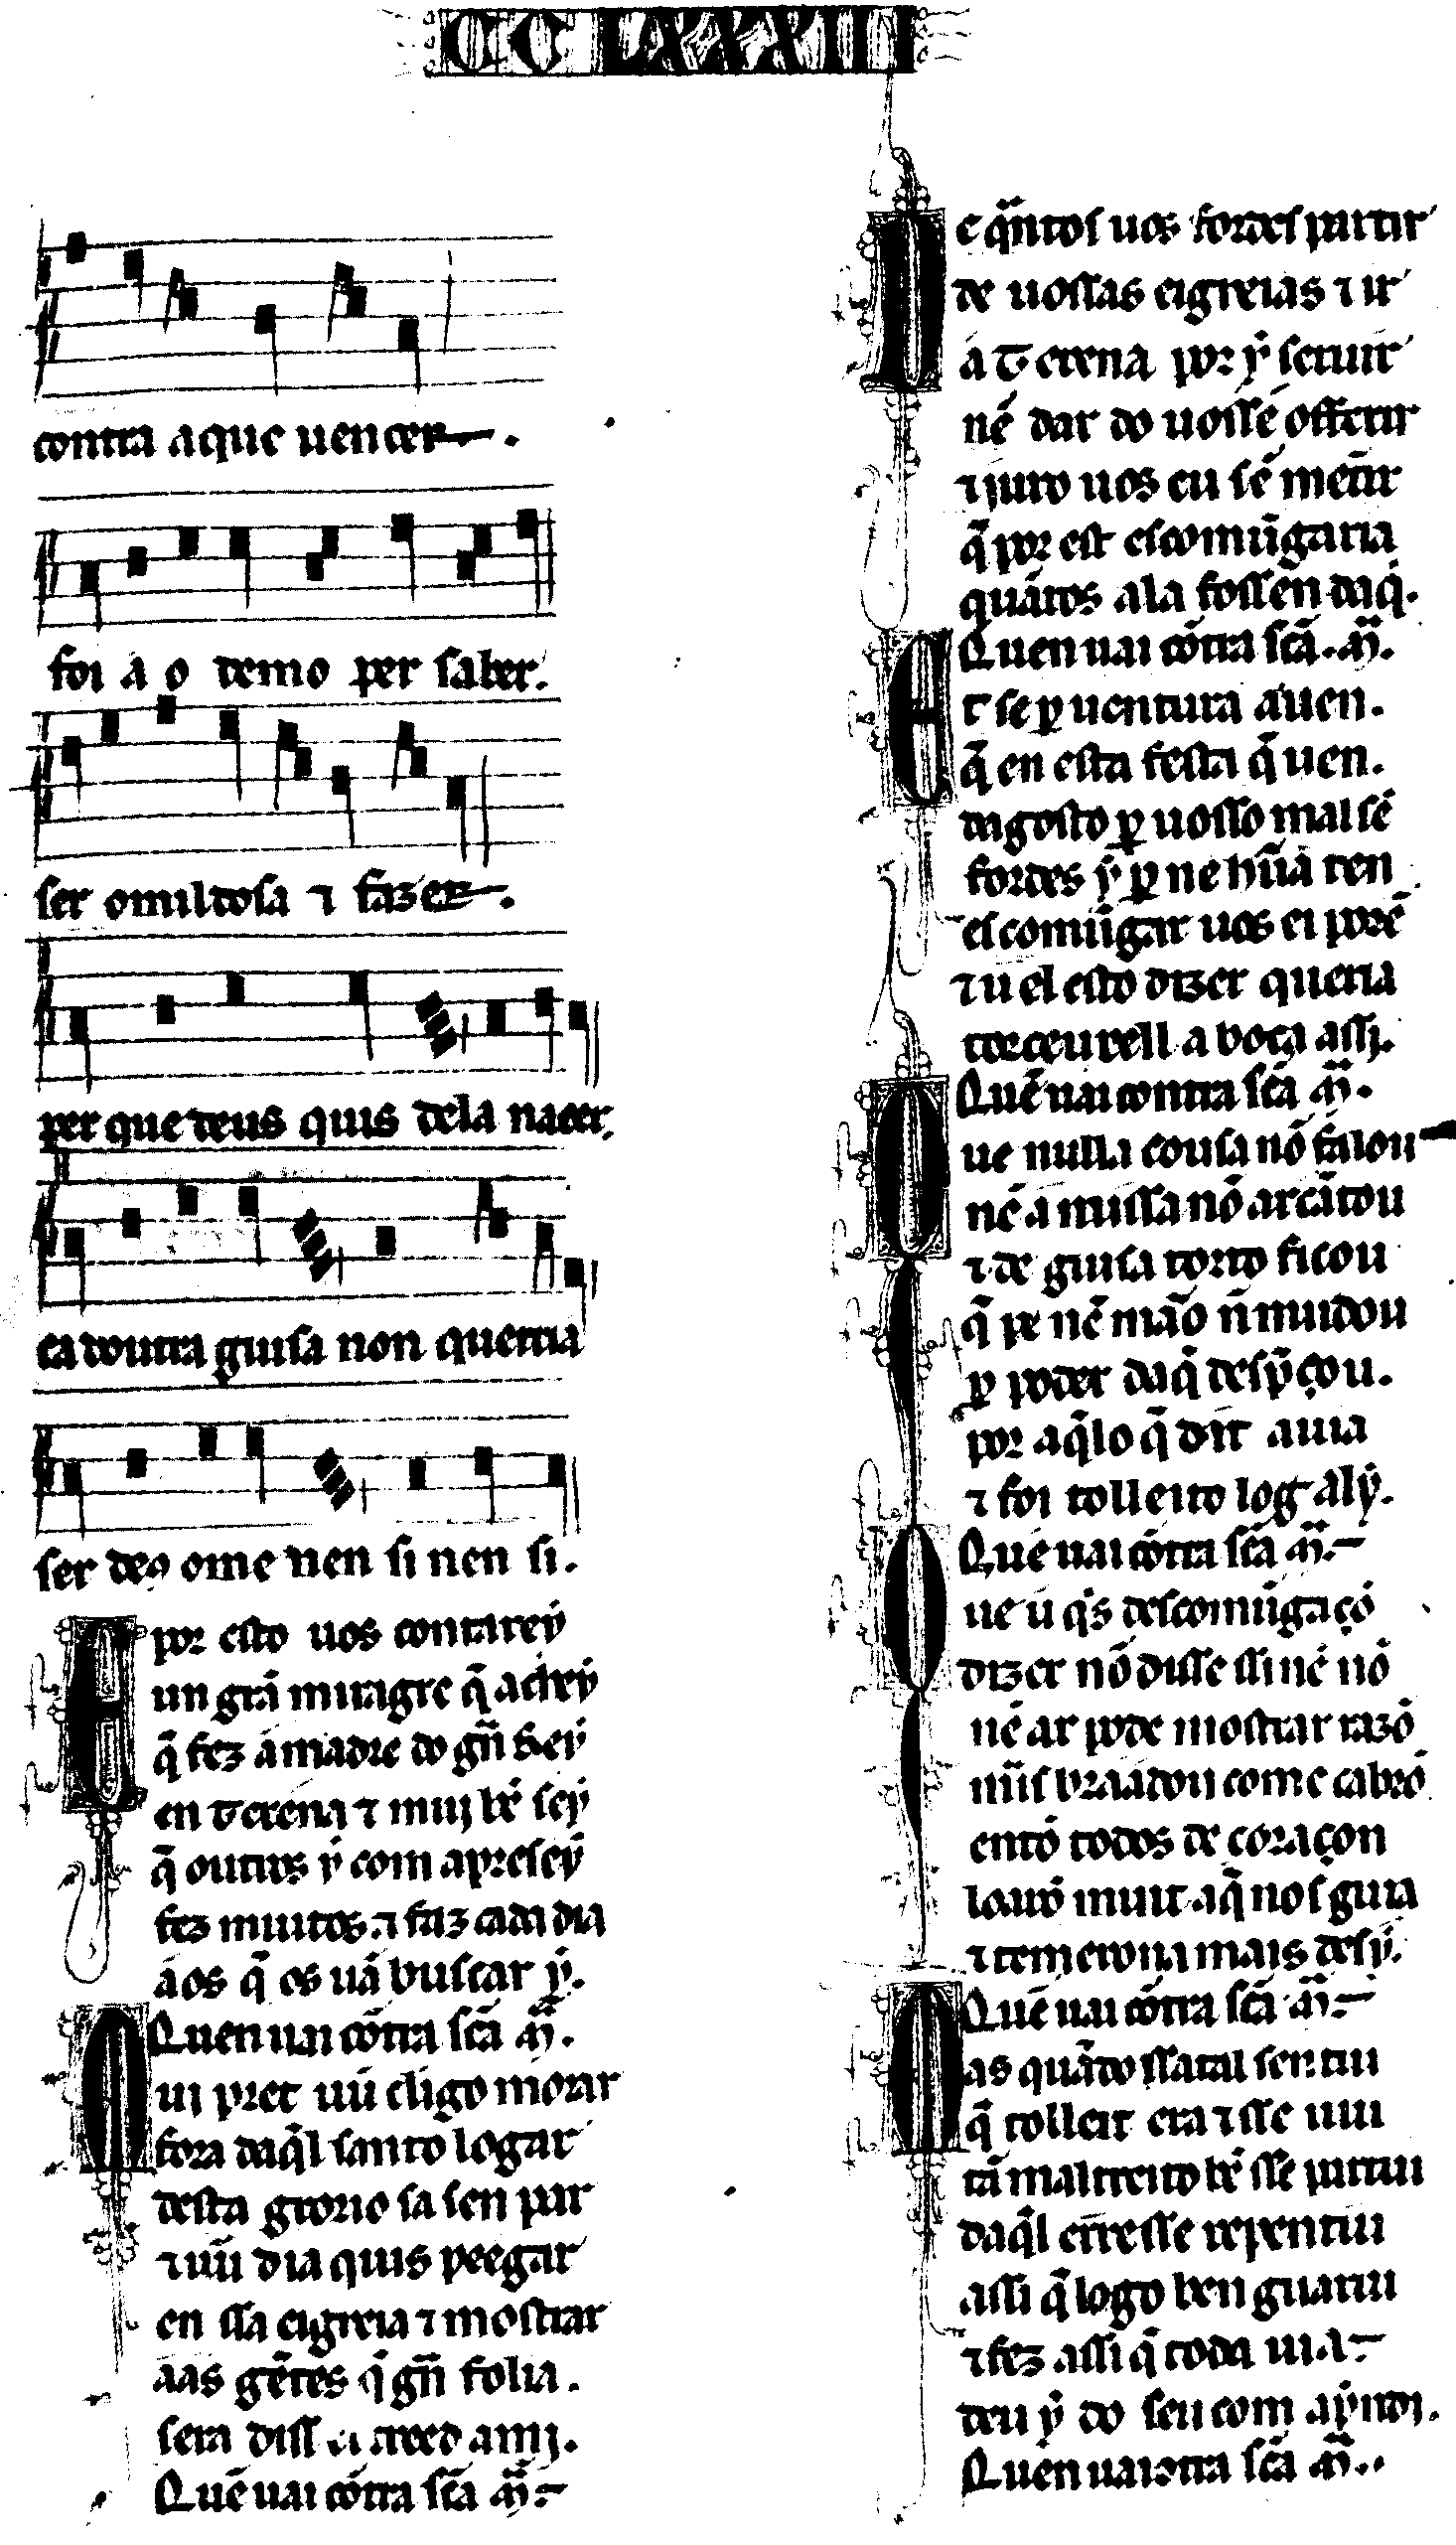 CCLXXXIII
contra a que uencer.
foi a o demo per saber.
ser omildosa ⁊ fazer.
per que deus quis dela nacer.
ca doutra guisa non querria
ser deꝯ ome nen si nen si.
E por esto uos contarey
un grã miragre q̃ achey
q̃ fez a madre do gñ Rey
en Terena ⁊ mui bẽ sey
q̃ outros ỹ com aprẽsey
fez muitos ⁊ faz cada dia
aos q̃ os uã buscar ỹ.
Quen uai cõtra scã ꝳ.
Mui pret uũ crerigo morar
fora daq̃l santo logar
desta groriosa sen par
⁊ uũ dia quis preegar
en ssa eigreia ⁊ mostrar
aas gẽtes q̃ gñ folia.
sera diss creed a mĩ.
Quẽ uai cõtra scã ꝳ.
De q̃ntos uos fordes partir
de uossas eigreias ⁊ ir
a Terena por ỹ seruir
nẽ dar do uossẽ offerir
⁊ juro uos eu sẽ mẽtir
q̃ por est escomũgaria
quãtos ala fossẽn daq̃.
Quen uai cõtra scã. ꝳ.
E t se ꝑuentura auen.
q̃ en esta festa q̃ uen.
dagosto ꝑ uosso mal sẽ
fordes ỹ ꝑ nehũa ren
escomũgar uos ei porẽ
⁊ u el esto dizer queria
torceu xell a boca assi.
Quẽ uai contra scã ꝳ.
Que nulla cousa nõ falou
nẽ a missa nõ ar cãtou
⁊ de guisa torto ficou
q̃ pe nẽ mão ñ mudou
ꝑ poder daq̃ desp̃çou.
por aq̃lo q̃ dit auia
⁊ foi tolleito log aly̆.
Quẽ uai cõtra scã ꝳ.
Que u q̃s descomũgaçõ
dizer nõ disse ssi nẽ nõ
nẽ ar pode mostrar razõ
mais braadou come cabrõ
entõ todos de coraçon
loarõ muit aq̃ nos guia
⁊ temerona mais desỹ.
Quẽ uai cõtra scã ꝳ.
Mas quãdo ssatal sentiu
q̃ tolleit era ⁊ sse uiu
tã maltreito bẽ sse partiu
daq̃l erresse repentiu
assi q̃ logo ben guariu
⁊ fez assi q̃ toda uia
deu ỹ do seu com aprẽdi.
Quen uai cõtra scã ꝳ.